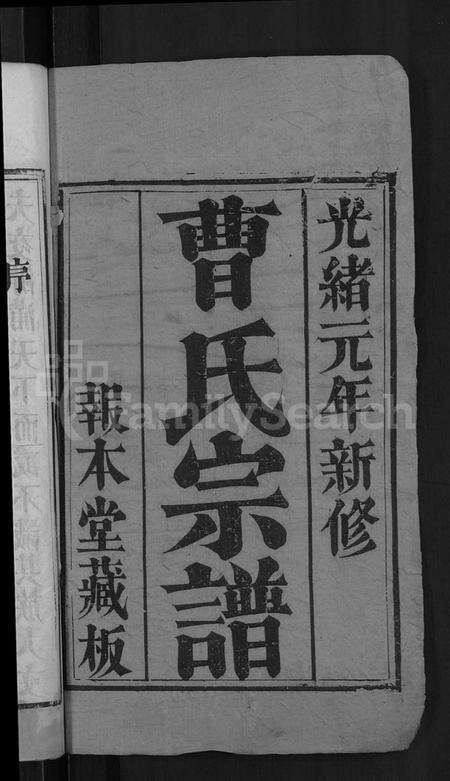 光緒元年新修
曹氏宗譜
報本堂藏板
FamilySearch
序